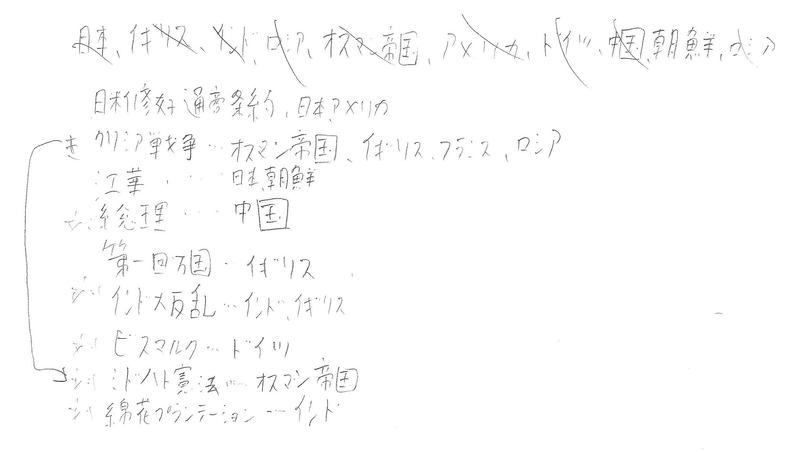 日本、イギリス、インド、ロシア、オスマン帝国、アメリカ、ドイツ、中国、朝鮮、ロシア
日米修好通商条約、日本、アメリカ
クリミア戦争…オスマン帝国、イギリス、フランス、ロシア
江華…日本、朝鮮
総理…中国
第一回万国…イギリス
インド大反乱…インド、イギリス
ビスマルク…ドイツ
ミドハト憲法…オスマン帝国
綿花プランテーション…インド